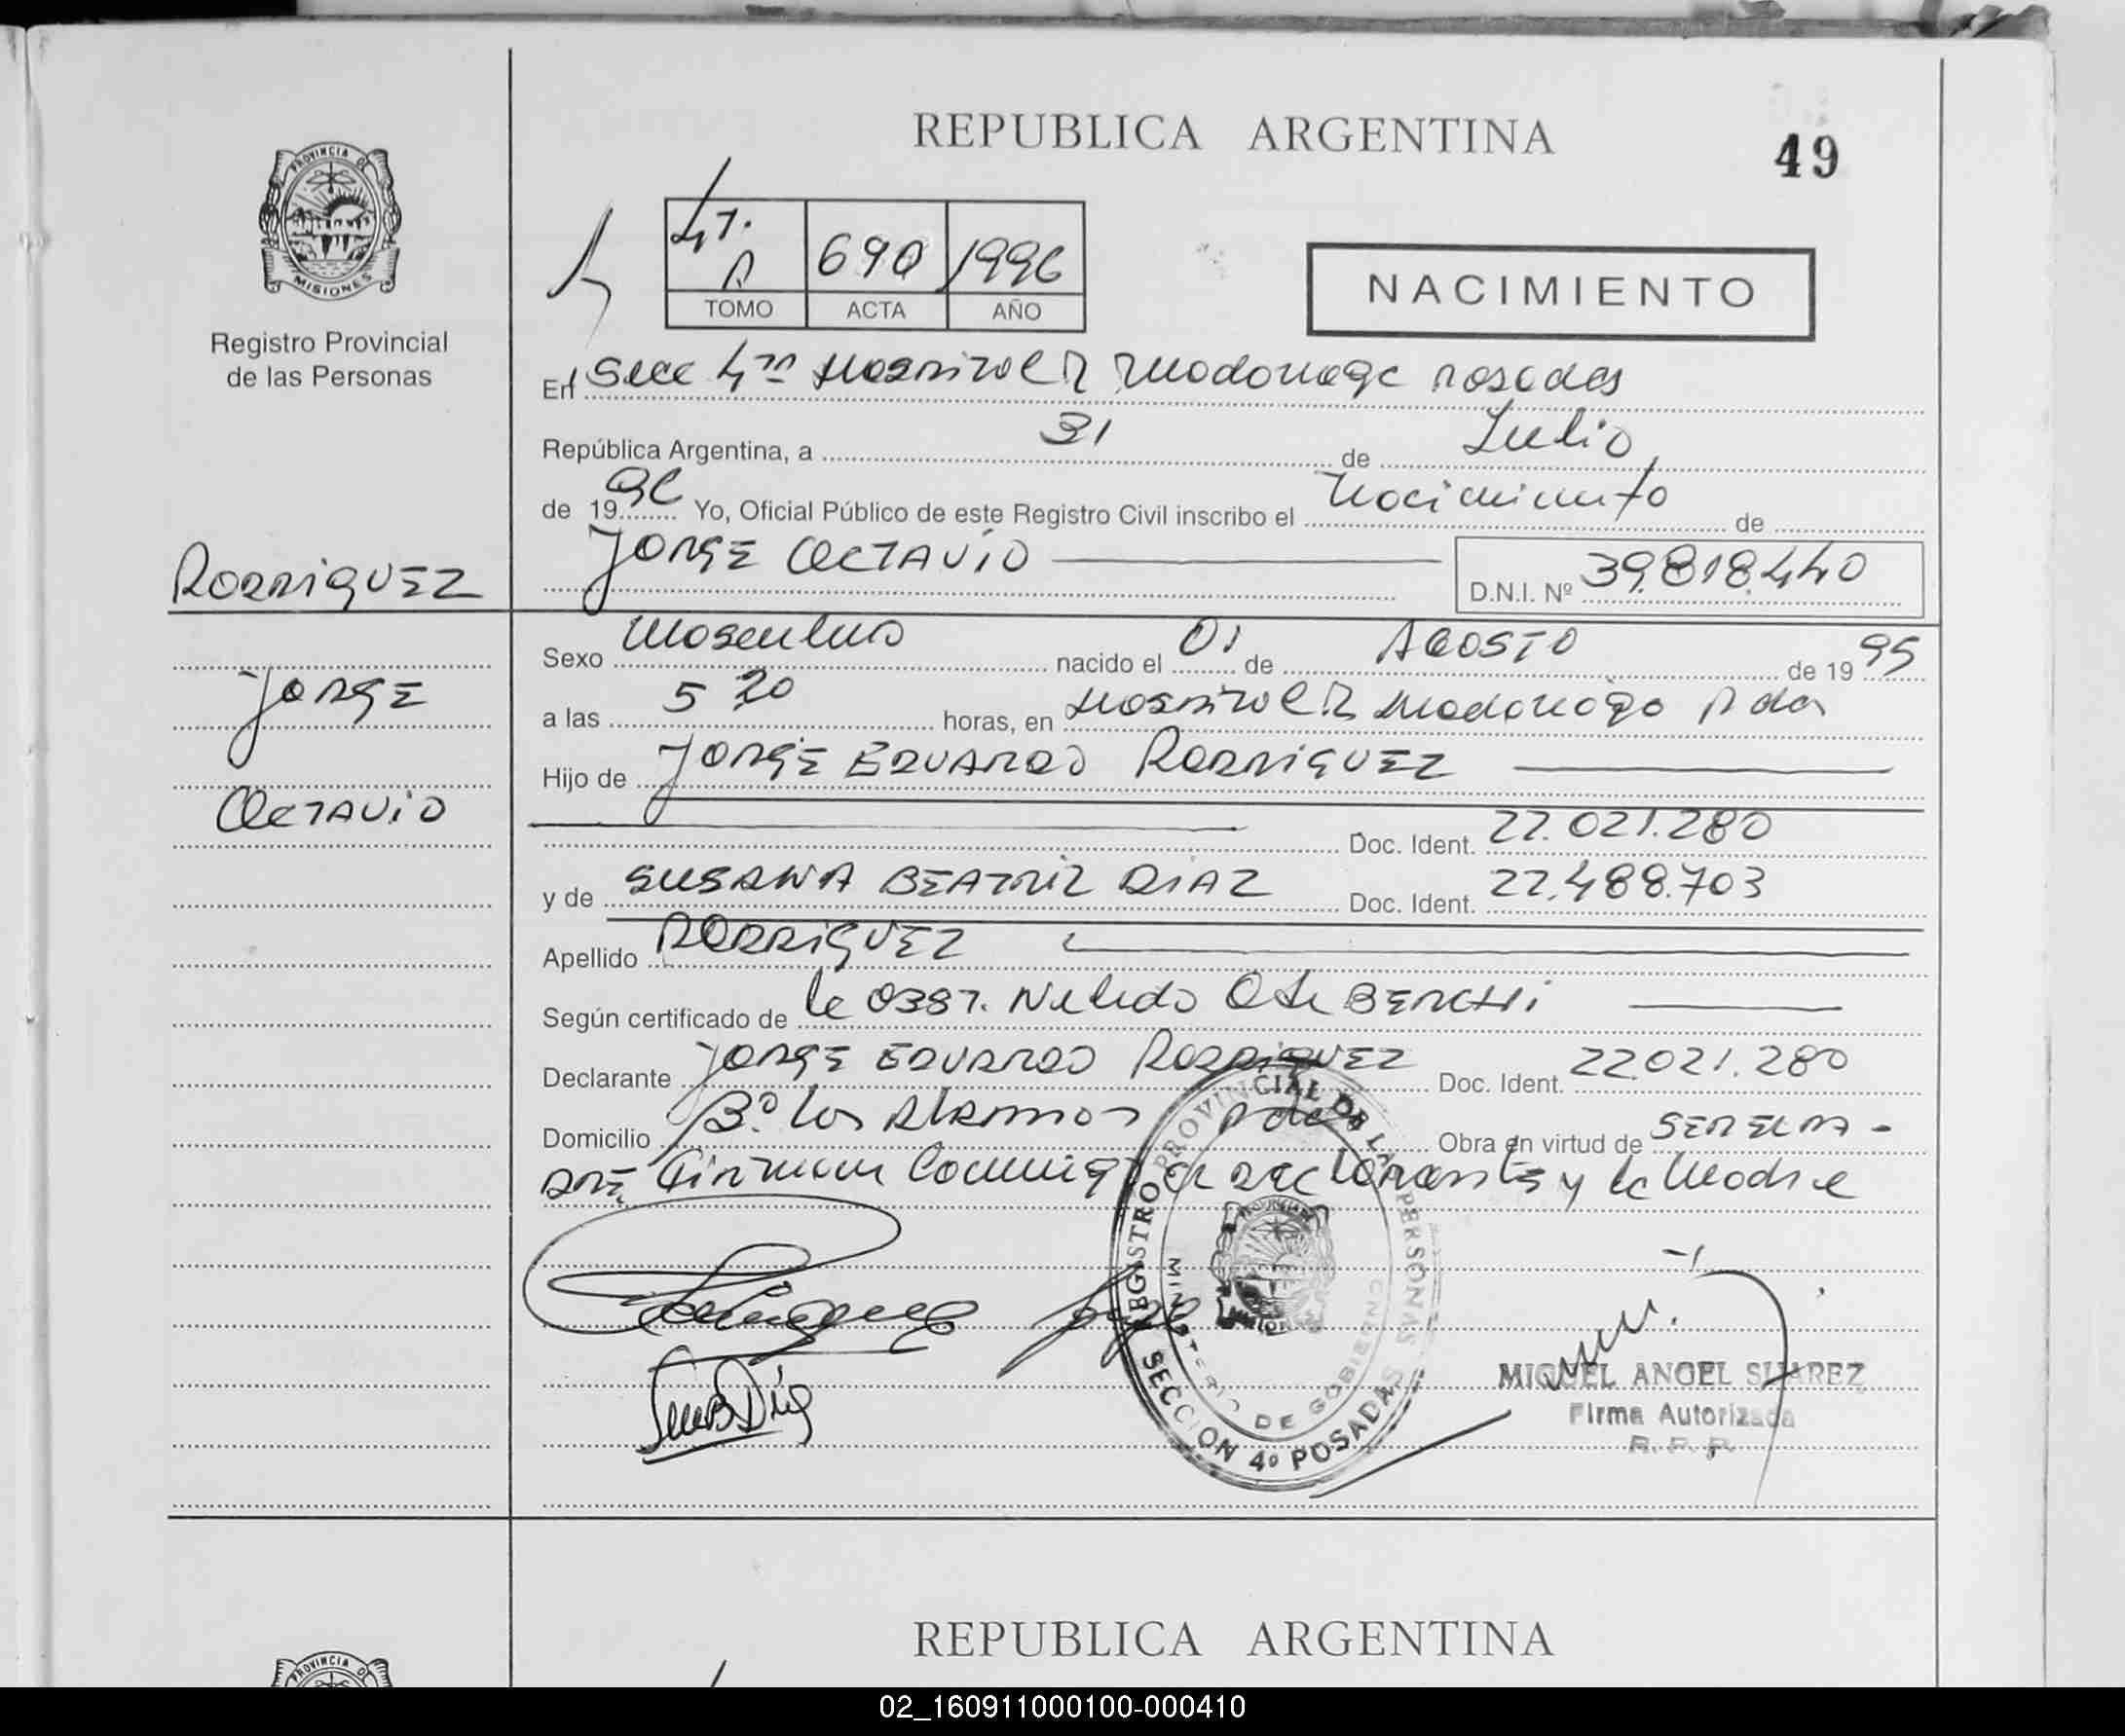 REPUBLICA ARGENTINA
49
PROVINCIA DE
MISIONES
Registro Provincial
de las Personas
690 1996
TOMO ACTA AÑO
NACIMIENTO
En Secc 4ta Hospital R Madariaga Posadas
República Argentina, a 31 de Julio
de 1996 Yo, Oficial Público de este Registro Civil inscribo el Nacimiento de
JORGE OCTAVIO D.N.I. Nº 39.818.440
RODRIGUEZ
JORGE
OCTAVIO
Sexo Masculino nacido el 01 de AGOSTO de 1995
a las 5 20 horas, en Hospital R Madariaga Pdas
Hijo de JORGE EDUARDO RODRIGUEZ
Doc. Ident. 22.021.280
y de SUSANA BEATRIZ DIAZ Doc. Ident. 22.488.703
Apellido RODRIGUEZ
Según certificado de
Declarante JORGE EDUARDO RODRIGUEZ Doc. Ident. 22.021.280
Domicilio Bº Los Alamos Pdas Obra en virtud de
Firman Conmigo el declarante y la Madre
REGISTRO PROVINCIAL DE LAS PERSONAS
MINISTERIO DE GOBIERNO
SECCION 4º POSADAS
MIGUEL ANGEL SUAREZ
Firma Autorizada
R. P. P.
REPUBLICA ARGENTINA
PROVINCIA D
02_160911000100-000410